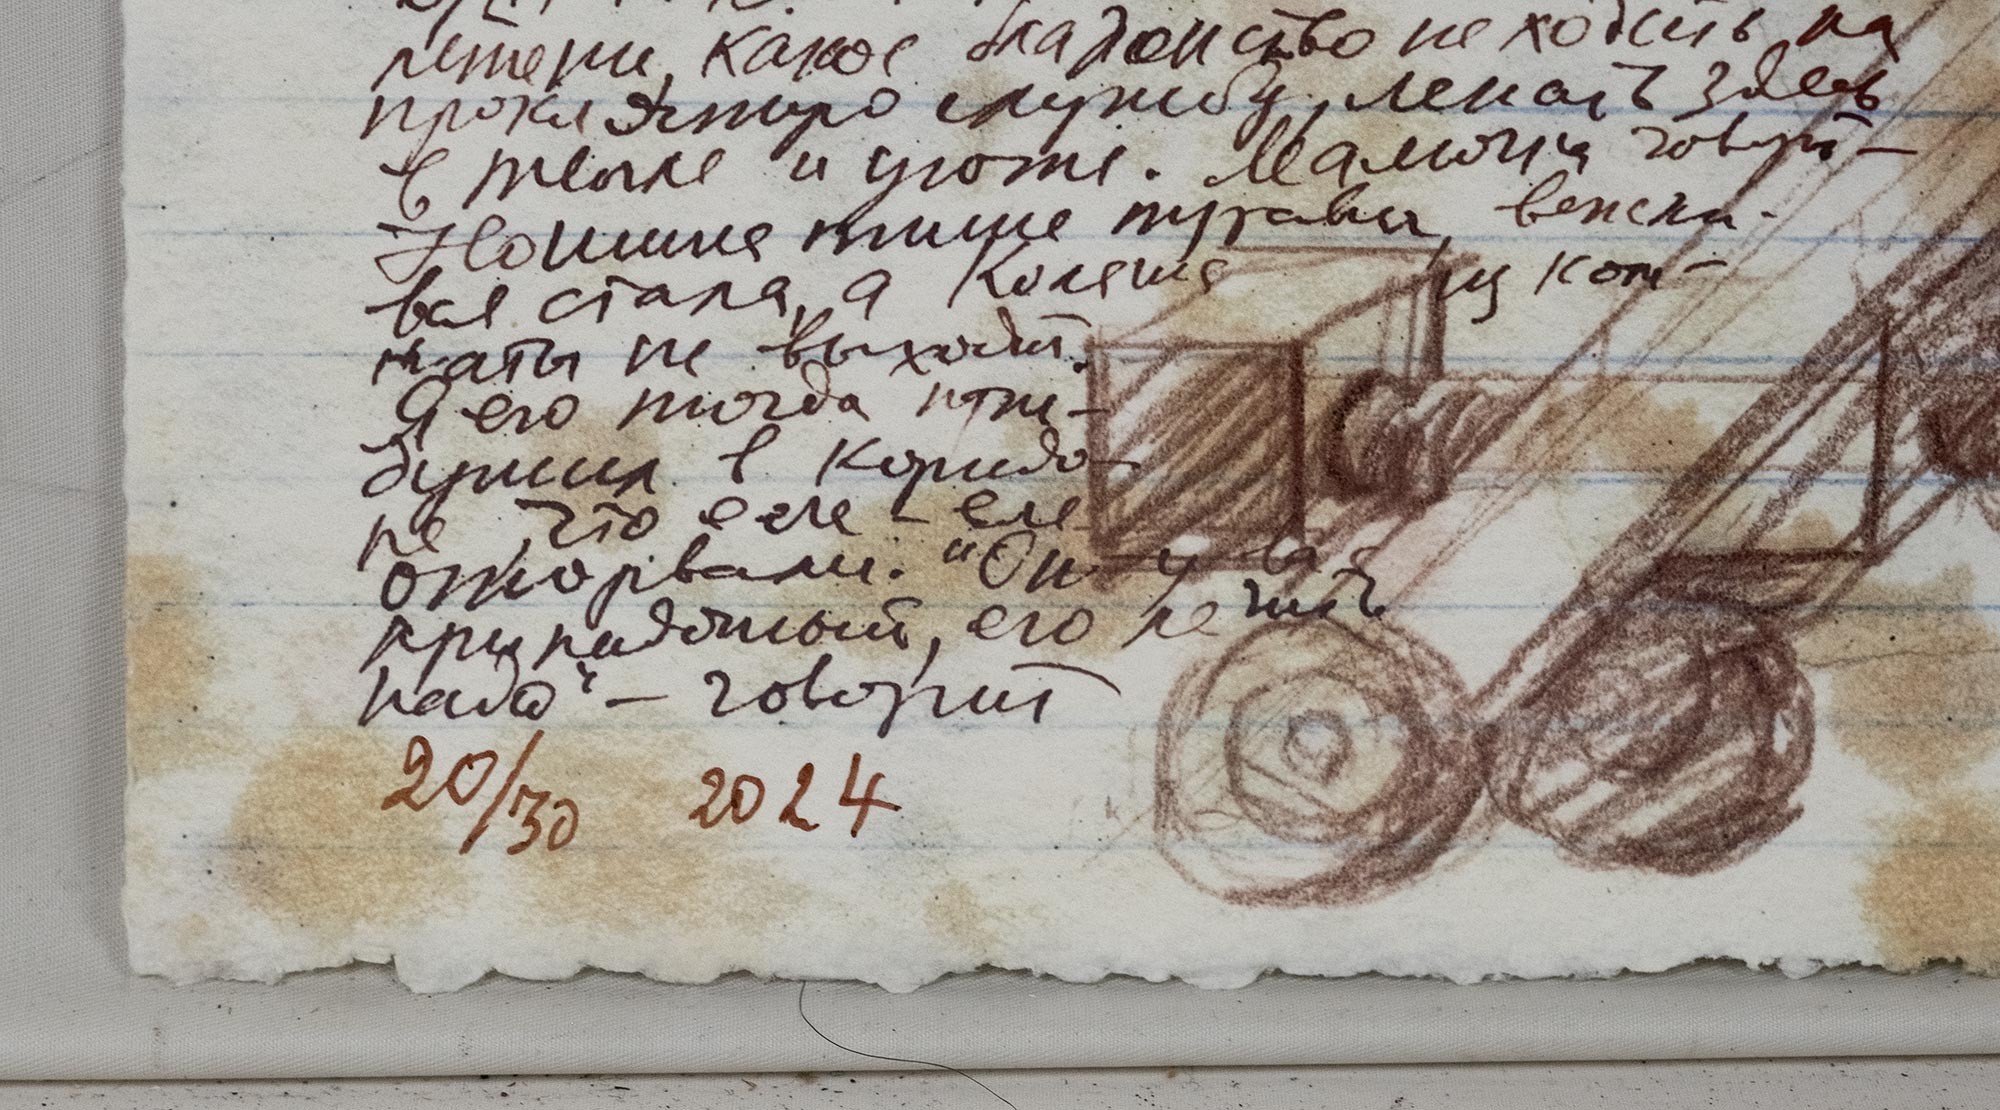 какое блаженство не ходить на
проклятую службу, лежать здесь
в тепле и уюте. Мамочка говорит –
Ноншина тише травы, вежли-
вая стала, а Коляша из ком-
наты не выходит.
Я его тогда при-
душил в коридо-
ре, что еле – еле
оторвали. "Он у вас
припадочный, его лечить
надо" – говорит
20/30 2024